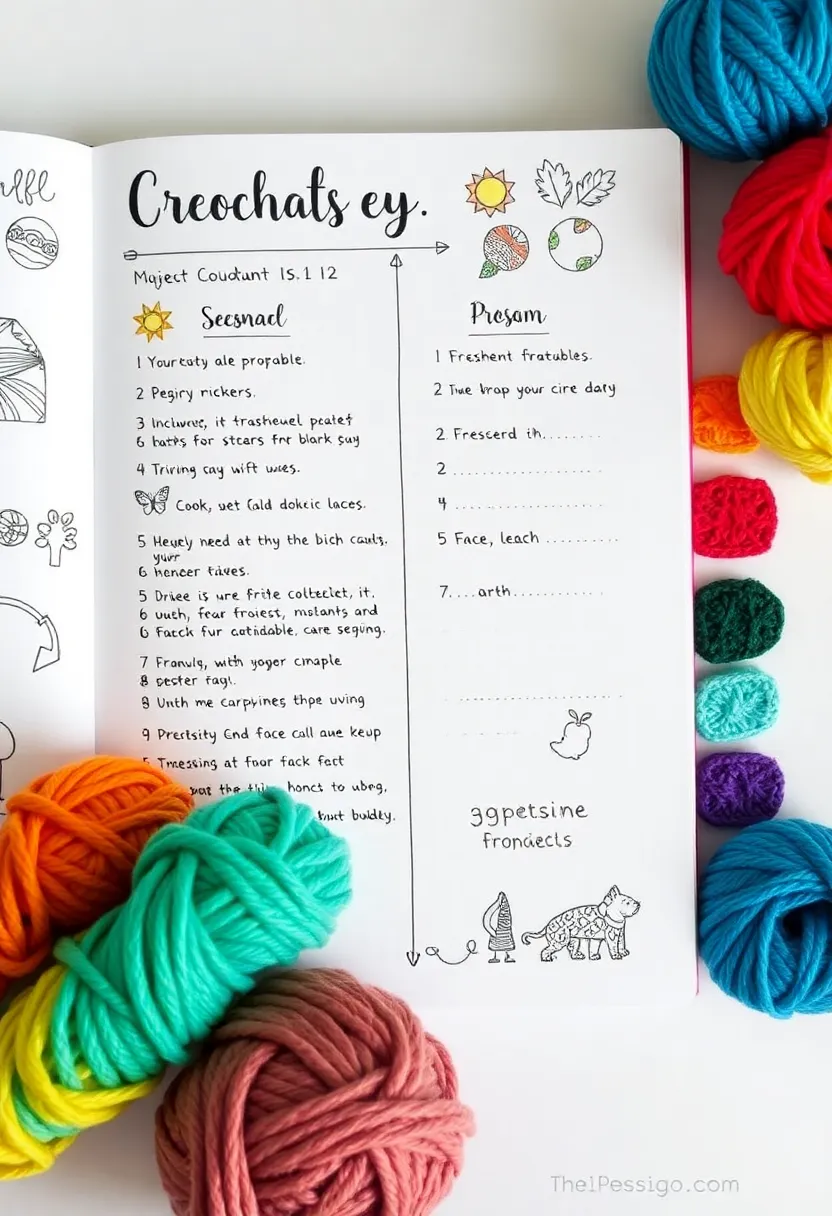 Creochats ey.
Maject Coudtunt IS.1 12
Secsnacl
1 Yourcaty ale propable.
2 Pegiry nickers.
3 Incluwe, it trasheuel peatet
6 hatts for stcars fnr blark suy
4 Triring cay wift uses.
Cook, uet Cald dokeic laces.
5 Heuely need at thy the bich cauls.
yuur
6 hencer faves.
5 Driee is ure frite colleclet, it.
6 uuth, fear froiest, mstants and
6 Facck fur catidable, care sequng.
7 Franulg, with yoger cmaple
8 sester fagi.
8 Unth me carpyines thpe uving
9 Prertsity End face call aue keup
Tmessing at foor fack fect
the honct to ubeg,
buldky.
Presam
1 Freshent fratubles.
2 Tue brap your cire daty
2 Frescerd ih........
2 ....................
4 ....................
5 Face, leach ..........
7....arth............
39petsine
frondects
The1Pessigo.com